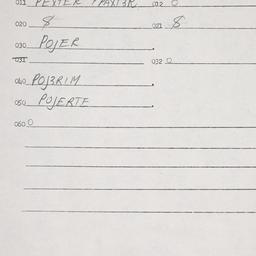 011 PEXTER 012 O
020 8 021 8
030 POJER
031 032 O
040 POJ3RIM
050 POJERTE
060 O